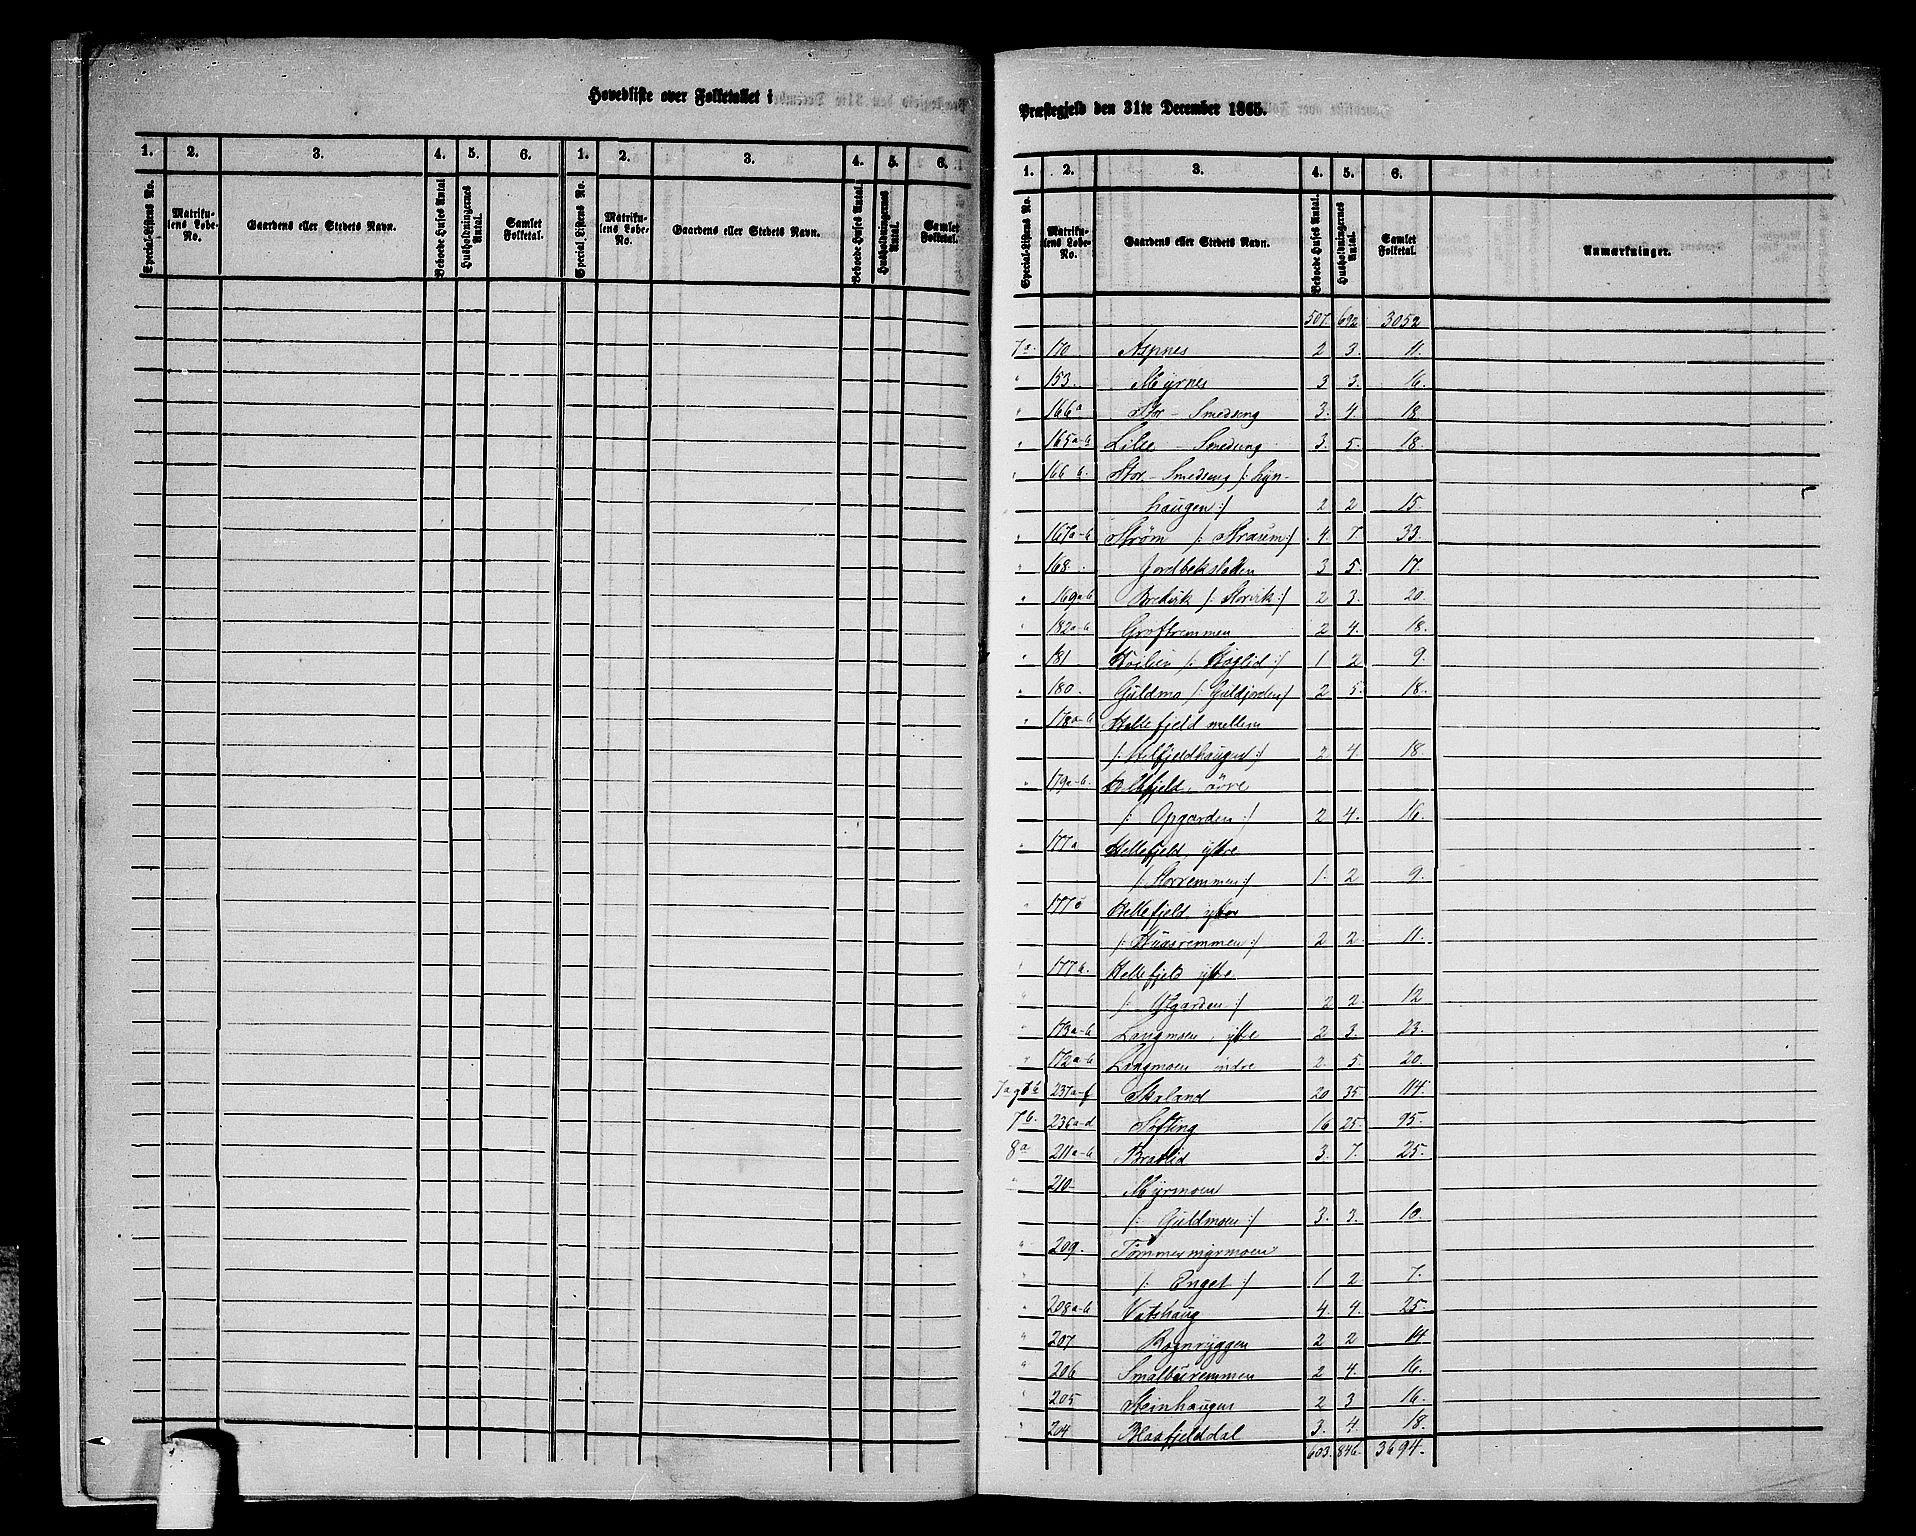 Hovedliste over Folketallet i
1. 2. 3. 4. 5. 6. 1. 2. 3. 4. 5. 6.
Special-Listens No. Matrikulens Løbe-No. Gaardens eller Stedets Navn. Beboede Huses Antal Husholdningernes Antal. Samlet Folketal. Special-Listens No. Matrikulens Løbe-No. Gaardens eller Stedets Navn. Beboede Huses Antal. Husholdningernes Antal. Samlet Folketal.
Præstegjeld den 31te December 1865.
1. 2. 3. 4. 5. 6.
Special-Listens No. Matrikulens Løbe-No. Gaardens eller Stedets Navn. Beboede Huses Antal. Husholdningernes Antal. Samlet Folketal. Anmærkninger.
507. 692 3052
7a 170 Aspnes 2 3. 11.
" 153. Myrnes 3 3. 16.
" 166a Stor - Smedseng 3. 4. 18
" 165a-b Lille - Smedseng 3. 5. 18.
" 166 b. Stor - Smedseng /: Lyn-
haugen :/ 2 2 15.
" 167a-b Strøm /: Straum :/ 4. 7. 33.
" 168. Jordbekslatten 3 5. 17.
" 169a-b Bredvik /: Storvik :/ 2 3. 20.
" 182a-b Groftremmen 2 4. 18.
" 181 Høilien /: Høglid :/ 1 2 9.
" 180. Guldmo /: Guldjorden :/ 2 5. 18.
" 178a-b Hellefjeld mellem
/: Helfjeldhaugen :/ 2 4. 18.
" 179a-b. Hellefjeld, øvre
/: Opgarden :/ 2 4. 16.
" 177a Hellefjeld, yttre
/: Storremmen :/ 1. 2 9.
" 177 Hellefjeld, yttre
/: Husremmen :/ 2 2. 11.
" 177b. Hellefjeld yttre
" /: Utgarden :/ 2 2. 12
" 173a-b Langmoen, yttre 2 3. 23.
" 172a-b Langmoen indre 2. 5. 20.
7a og 7b 237a-f Straland 20 35 114.
7b. 236a-d Søfting 16 25. 95.
8a 211a-b Bratlid 3. 7. 25.
" 210 Myrmoen
/: Guldmoen :/ 3. 3. 10.
" 209. Tømmermyrmoen
" /: Enget :/ 1 2 7.
" 208a-b Vatshaug 4. 4. 25.
" 207 Rognryggen 2 2 14
" 206 Smalburemmen 2 4. 16.
" 205 Steinhaugen 2 3 16.
" 204 Blaafjelddal 3. 4 18.
603. 846. 3694.